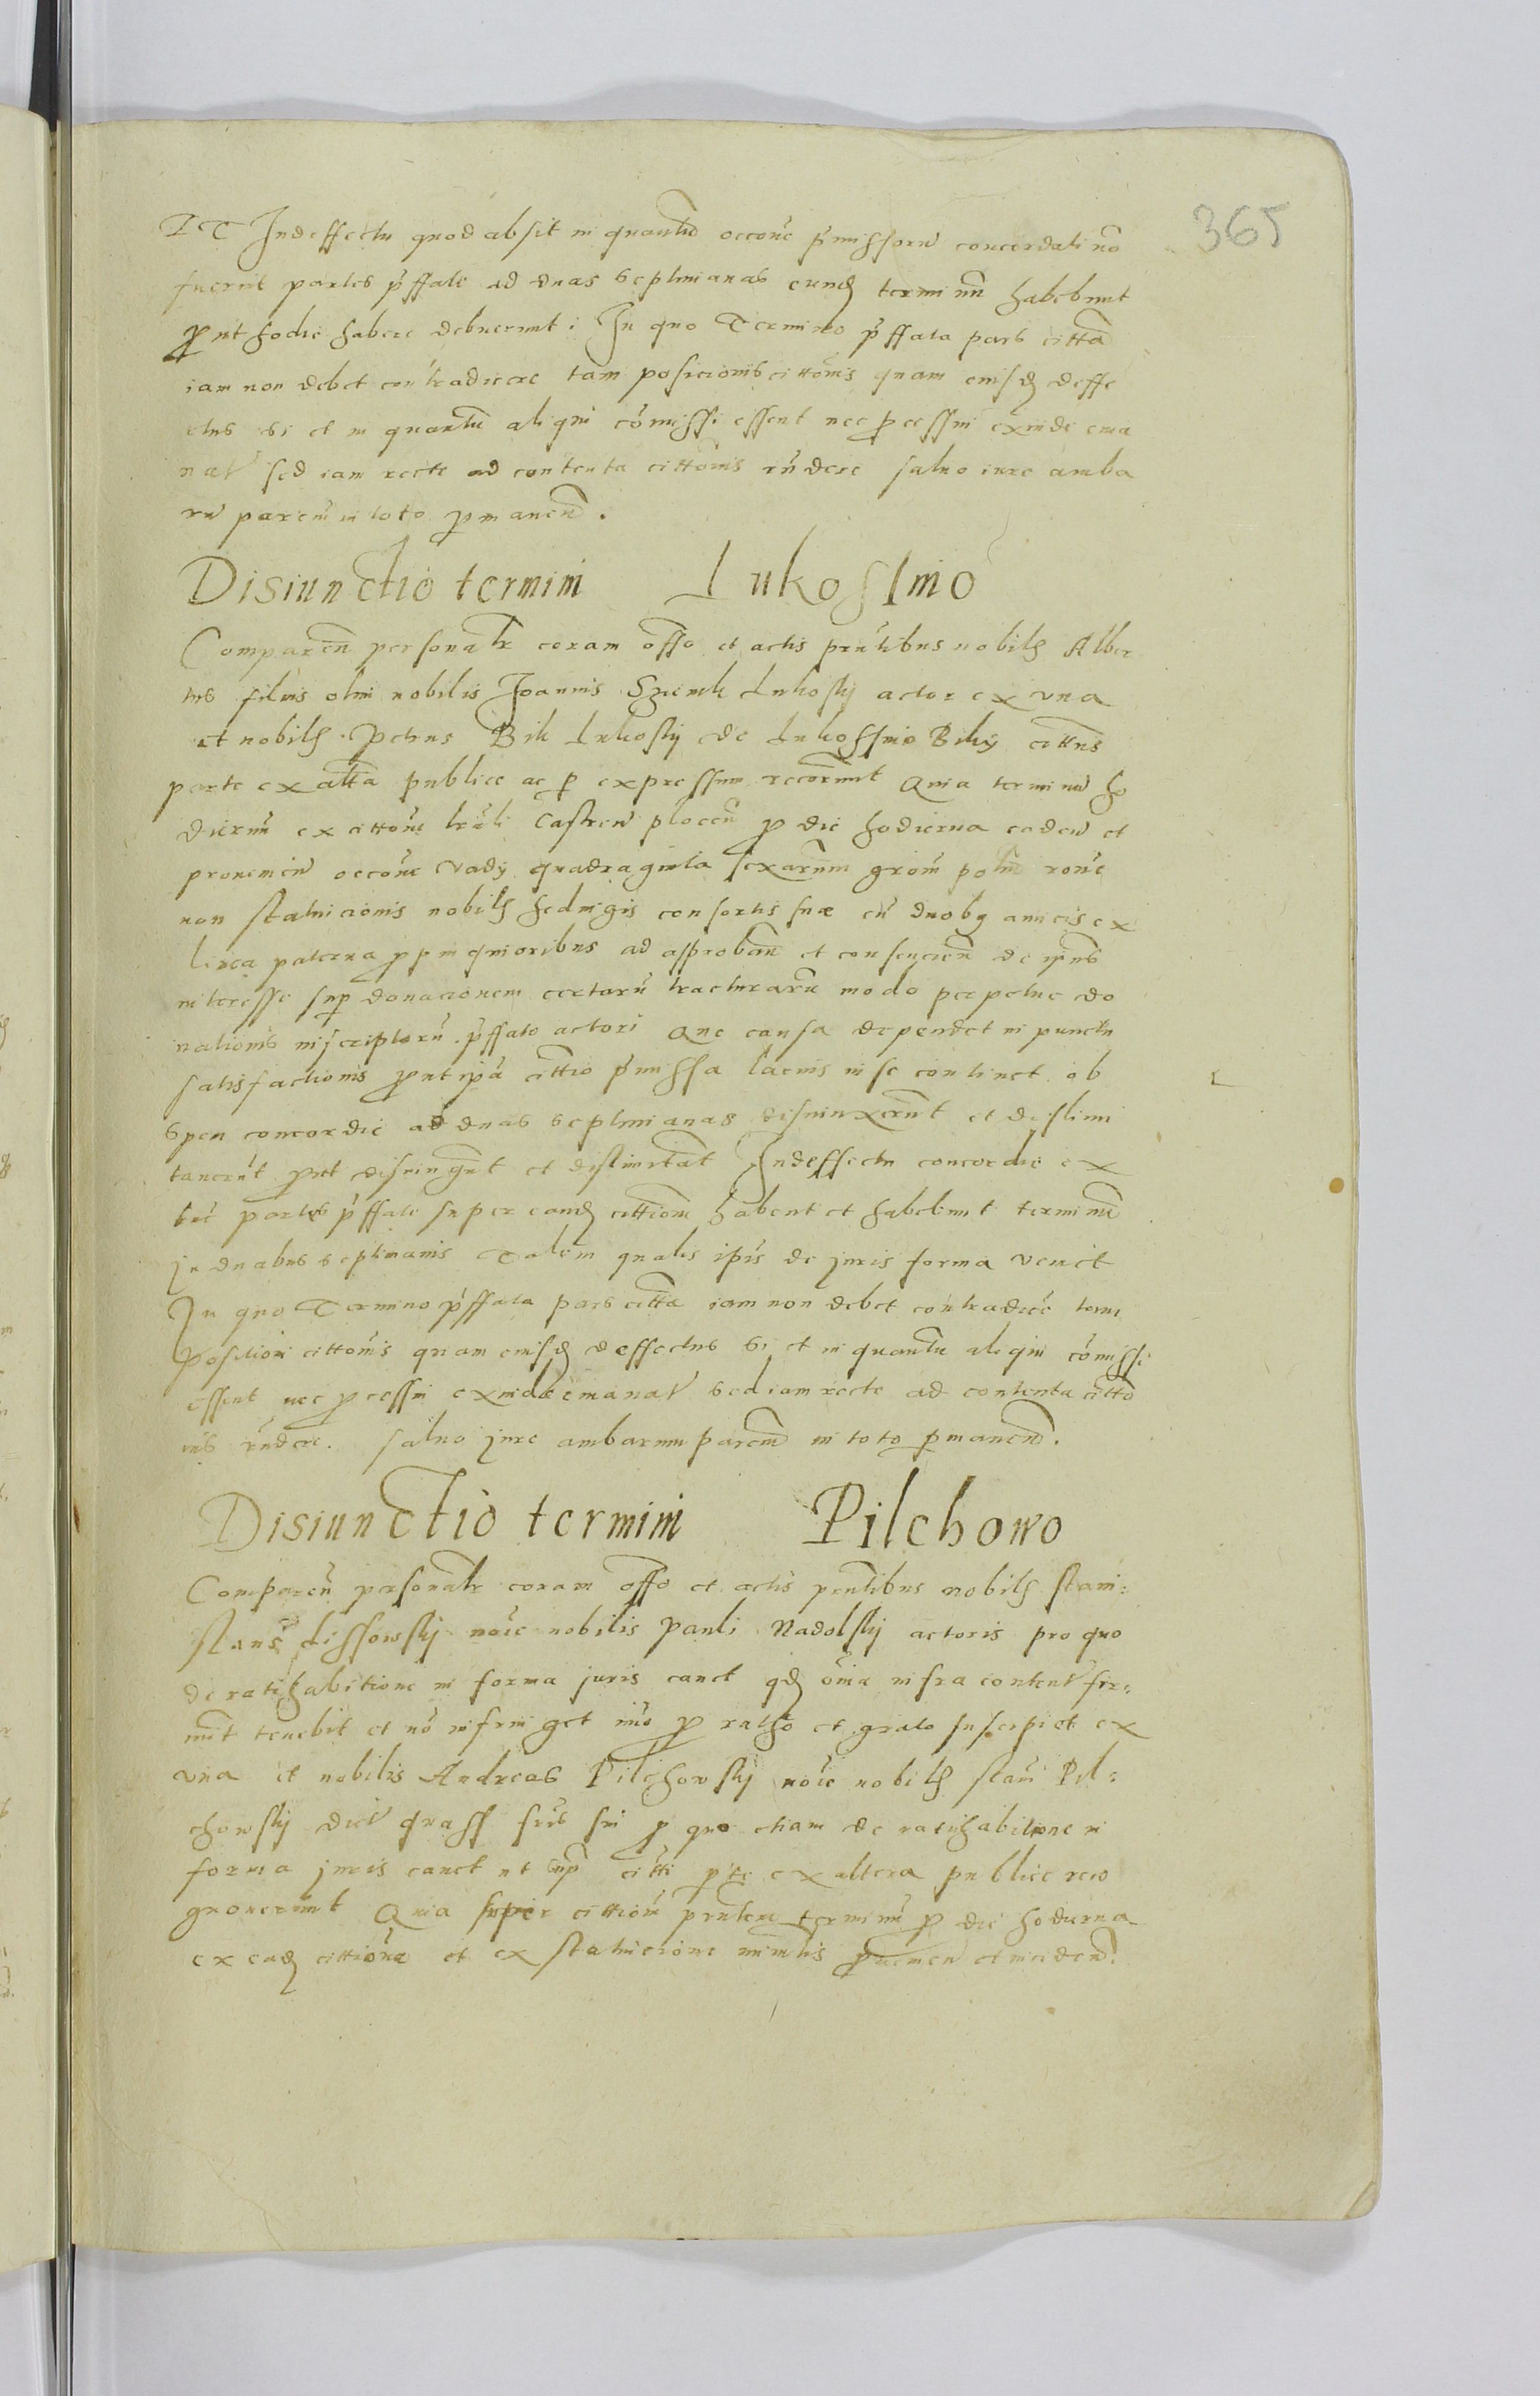 365
ET Indeffectu quod absit in quantu occone pmissoru concordati no
fuerint partes pffate ad duas septimanas eund terminu habebunt
prout hodie habere debuerunt. In quo Termino pffata pars citta
iam non debet contradicere tam posicionis cittonis quam eiusd deffe
ctus si et in quantu aliqui comissi essent nec pcessui exinde ema
nat sed iam recte ad contenta cittonis rndere saluo iure amba
ru parciu in toto pmanen.
Disiunctio termini Lukossino
Comparen personalr coram offo et actis pntibus nobilis Alber
tus filius olim nobilis Joannis Lukosky actor ex vna
et nobilis Petrus Bik Lukosky de Lukossino Biky cittus
parte ex altta publice ac p expressum recorunt Quia terminu ho
diernu ex cittone trali Castren plocen p die hodierna eaden et
prouenien occone vady quadraginta sexarum groru polm rone
non statuicionis nobilis Hedwigis consortis sue cu duobq amicis ex
linea paterna ppinquioribus ad approban et consencien de ipius
interesse sup donacionem certaru tracturaru modo perpetue do
nationis inscriptoru pffato actori Que causa dependet in punctu
satisfactionis prout ipa cittio pmissa lacius in se continet ob
spem concordie ad duas septimanas disiunxerunt et dislimi
tauerut prout disiungut et dislimitant Indeffectu concordie ex
tuc partes pffate super eand cittione habent et habebunt terminu
In duabus septimanis Talem qualis ipis de juris forma venit
In quo Termino pffata pars citta iam non debet contradice tam
positioni cittonis quam eiusd deffectus si et in quantu aliqui comissi
essent nec pcessui exinde emanat sed iam recte ad contenta citto
nis rndere. Saluo jure ambarum parciu in toto pmanend.
Disiunctio termini Pilchowo
Comparen personalr coram offo et actis pntibus nobilis Stani-
slaus Lissowsky noie nobilis Pauli Nadolsky actoris pro quo
de ratihabitione in forma juris cauet qd oia infra content fir-
mit tenebit et no infringet imo p ratho et grato suscipiet ex
vna et nobilis Andreas Pilchowsky noie nobilis Stani Pil-
chowsky dict fris sui p quo etiam de ratihabitione in
forma juris cauet ut sup citti pte ex altera publice reco
gnouerunt Quia super cittion pntem terminu p die hodierna
ex ead cittione et ex statuicione